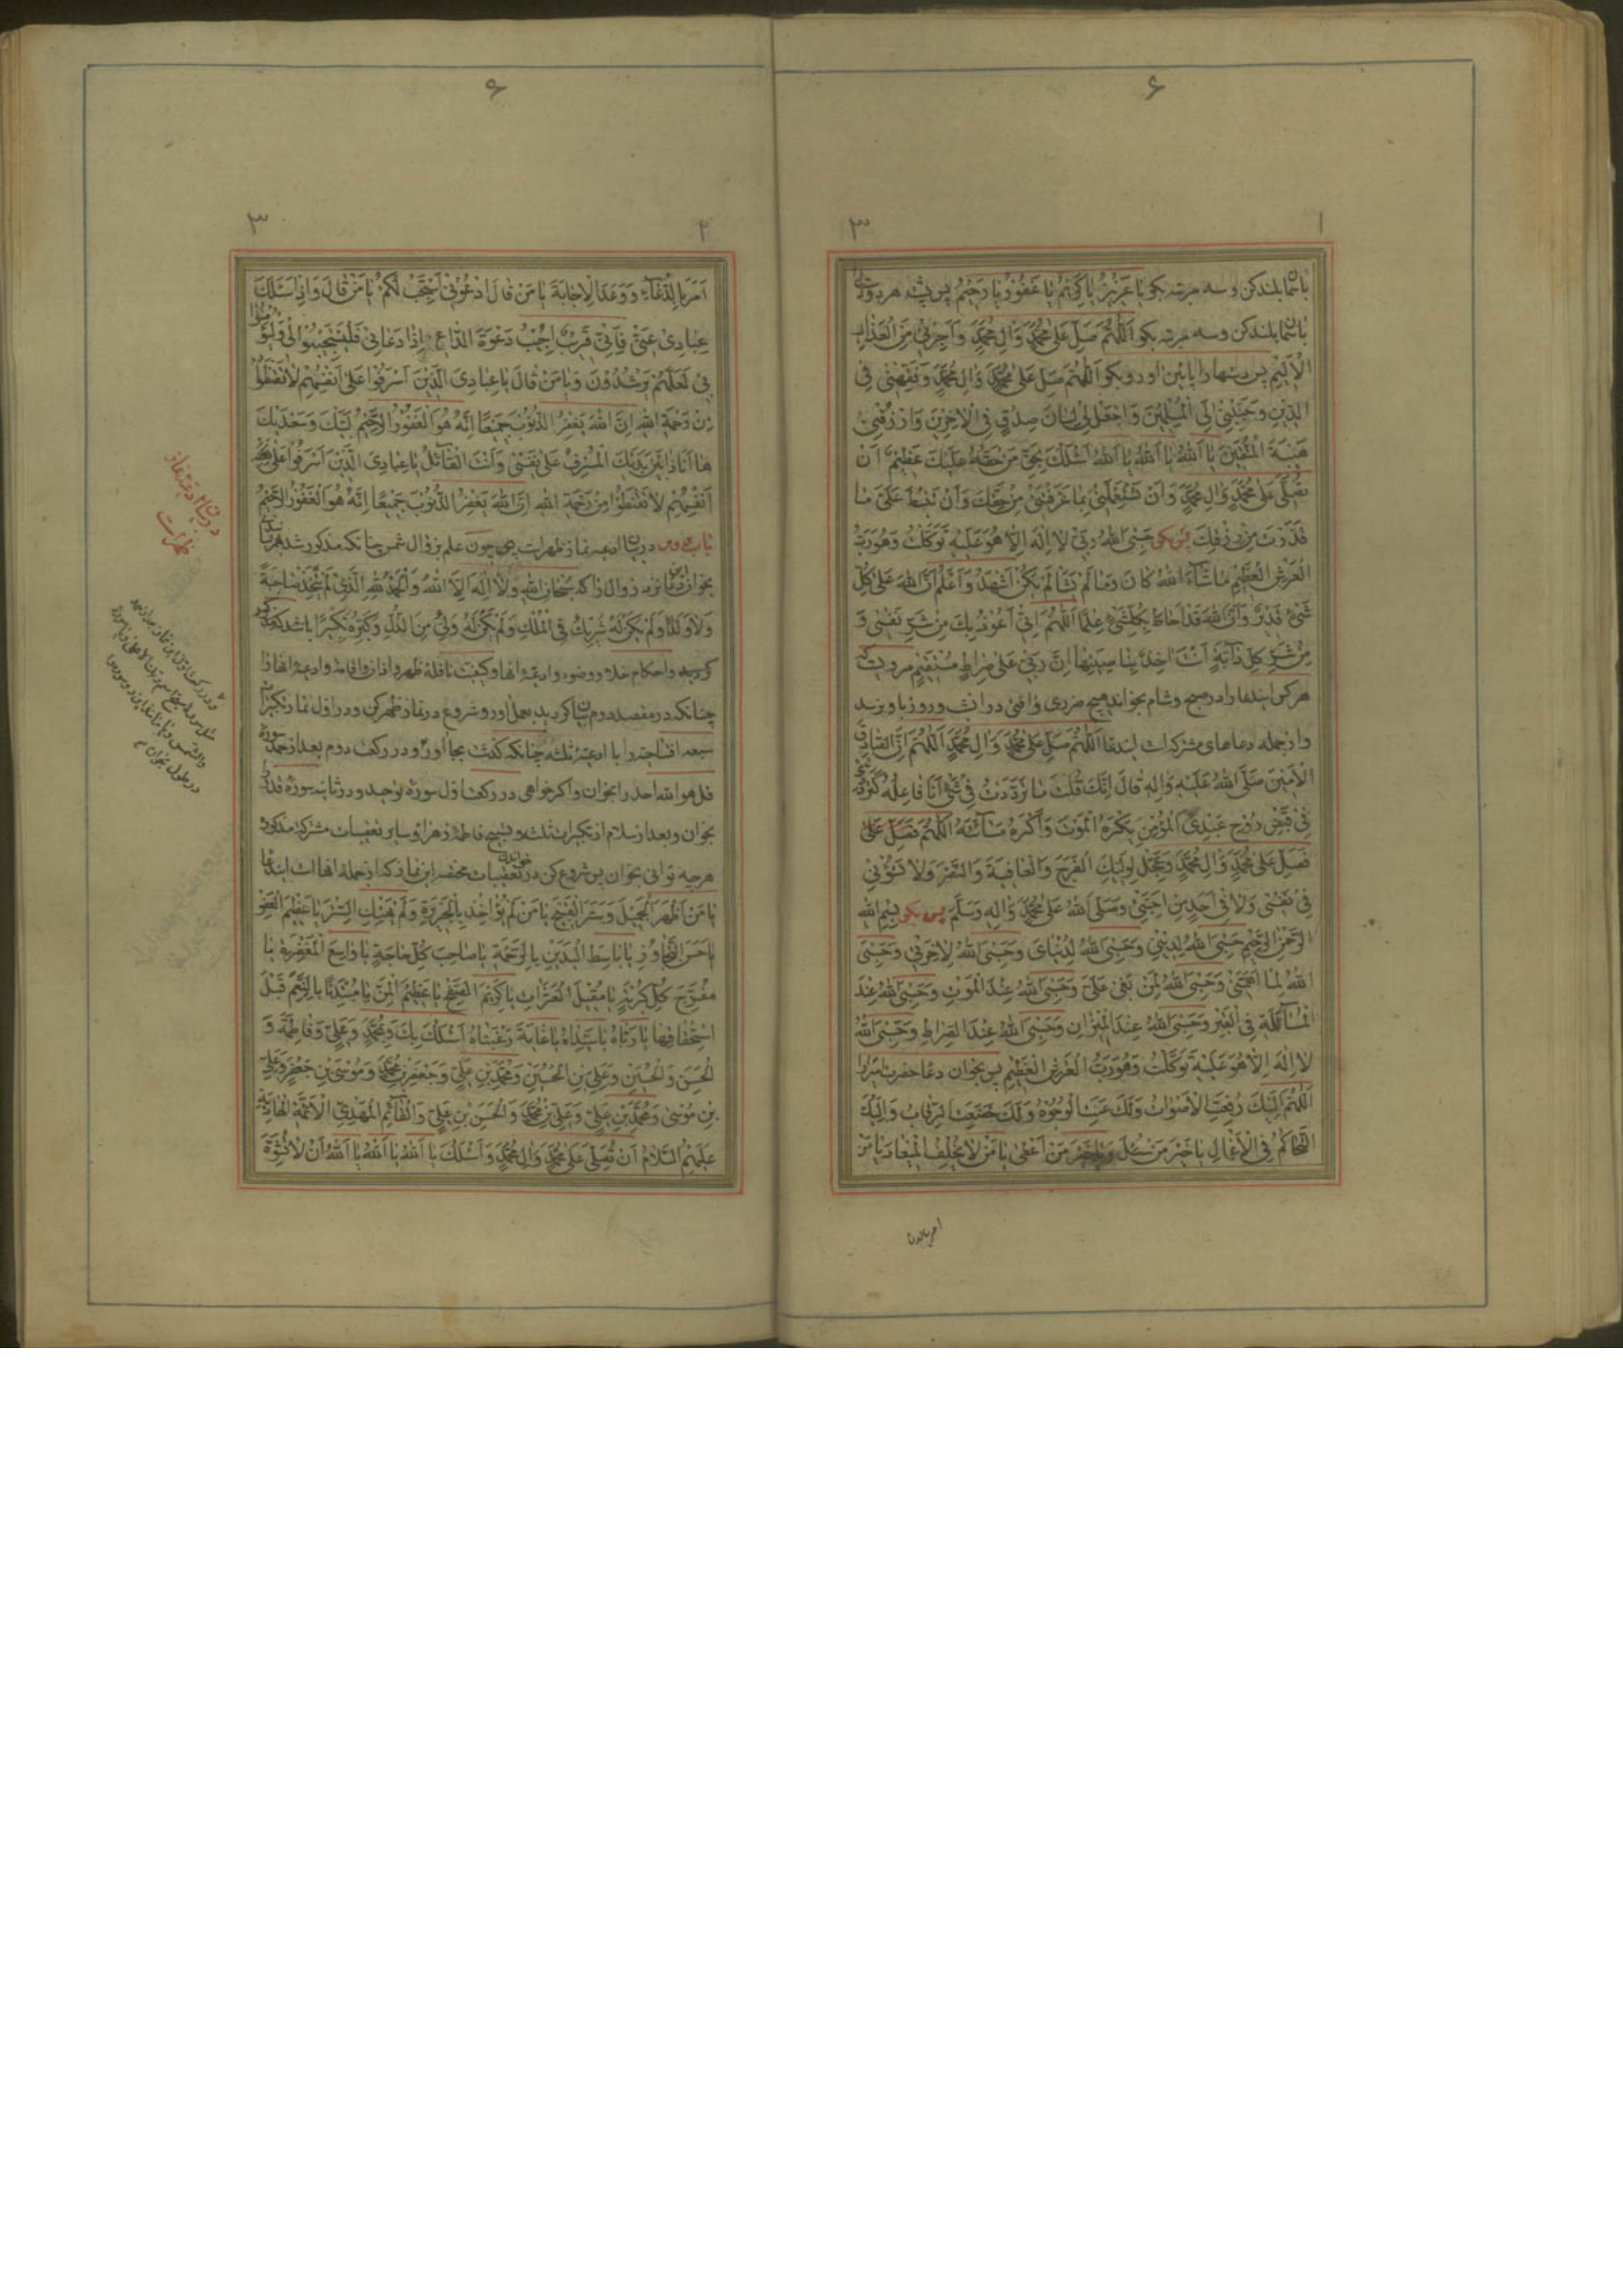 ۶
۱
۳
بآسمان بلند کن و سه مرتبه بکو یا عَزیزُ یا کَریمُ یا غَفُورُ یا رَحیمُ پس پشت هر دو دست را
بآسمان بلند کن وسه مرتبه بکو اَللّهُمَّ صَلِّ عَلی مُحَمَّدٍ وَالِ مُحَمَّدٍ وَاَجِرْنی مِنَ الْعَذابِ
الْاَلیمِ پس دستها را پائین اور و بکو اَللّهُمَّ صَلِّ عَلی مُحَمَّدٍ وَالِ مُحَمَّدٍ وَفَقِّهْنی فِی
الدّینِ وَحَبِّبْنی اِلَی الْمُسْلِمینَ وَاجْعَلْ لی لِسانَ صِدْقٍ فِی الْاخِرینَ وَارْزُقْنی
هَیْبَةَ الْمُتَّقینَ یا اَللّهُ یا اَللّهُ یا اَللّهُ اَسْئَلُکَ بِحَقِّ مَنْ حَقُّهُ عَلَیْکَ عَظیمٌ اَنْ
تُصَلِّیَ عَلی مُحَمَّدٍ وَالِ مُحَمَّدٍ وَاَنْ تَسْتَعْمِلَنی بِما عَرَّفْتَنی مِنْ حَقِّکَ وَاَنْ تَبْسُطَ عَلَیَّ ما
مِنْ رِزْقِکَ پس بکو حَسْبِیَ اللّهُ رَبّی لا اِلهَ اِلاّ هُوَ عَلَیْهِ تَوَکَّلْتُ وَهُوَ رَبُّ
الْعَرْشِ الْعَظیمِ ما شآءَ اللّهُ کانَ وَما لَمْ یَشَأْ لَمْ یَکُنْ اَشْهَدُ وَاَعْلَمُ اَنَّ اللّهَ عَلی کُلِّ
شَیْءٍ قَدیرٌ وَاَنَّ اللّهَ قَدْ اَحاطَ بِکُلِّ شَیْءٍ عِلْمًا اَللّهُمَّ اِنّی اَعُوذُ بِکَ مِنْ شَرِّ نَفْسی وَ
مِنْ شَرِّ کُلِّ دآبَّةٍ اَنْتَ اخِذٌ بِناصِیَتِها اِنَّ رَبّی عَلی صِراطٍ مُسْتَقیمٍ مرویست که
هر کس ایندعا را در صبح و شام بخواند هیچ ضرری و افتی در انشب و روز باو نرسد
و از جمله دعاهای مشترکه است ایندعا اَللّهُمَّ صَلِّ عَلی مُحَمَّدٍ وَالِ مُحَمَّدٍ اَللّهُمَّ اِنَّ الصّادِقَ
الْاَمینَ صَلَّی اللّهُ عَلَیْهِ وَالِهِ قالَ اِنَّکَ قُلْتَ ما تَرَدَّدْتُ فی شَیْءٍ اَنَا فاعِلُهُ کَتَرَدُّدی
فی قَبْضِ رُوحِ عَبْدِیَ الْمُؤْمِنِ یَکْرَهُ الْمَوْتَ وَاَکْرَهُ مَسآئَتَهُ اَللّهُمَّ
فَصَلِّ عَلی مُحَمَّدٍ وَالِ مُحَمَّدٍ وَعَجِّلْ لِوَلِیِّکَ الْفَرَجَ وَالْعافِیَةَ وَالنَّصْرَ وَلا تَسُؤْنی
فی نَفْسی وَلا فی اَحَدٍ مِنْ اَحِبَّتی وَصَلَّی اللّهُ عَلی مُحَمَّدٍ وَالِهِ وَسَلَّمَ پس بکو بِسْمِ اللّهِ
الرَّحْمنِ الرَّحیمِ حَسْبِیَ اللّهُ لِدینی وَحَسْبِیَ اللّهُ لِدُنْیایَ وَحَسْبِیَ اللّهُ لِاخِرَتی وَحَسْبِیَ
اللّهُ لِما اَهَمَّنی وَحَسْبِیَ اللّهُ لِمَنْ بَغی عَلَیَّ وَحَسْبِیَ اللّهُ عِنْدَ الْمَوْتِ وَحَسْبِیَ اللّهُ عِنْدَ
الْمَسْآئَلَةِ فِی الْقَبْرِ وَحَسْبِیَ اللّهُ عِنْدَ الْمیزانِ وَحَسْبِیَ اللّهُ عِنْدَ الصِّراطِ وَحَسْبِیَ اللّهُ
لا اِلهَ اِلاّ هُوَ عَلَیْهِ تَوَکَّلْتُ وَهُوَ رَبُّ الْعَرْشِ الْعَظیمِ پس بخوان دعا حضرت
اَللّهُمَّ اِلَیْکَ رُفِعَتِ الْاَصْواتُ وَلَکَ عَنَتِ الْوُجُوهُ وَلَکَ خَضَعَتِ الرِّقابُ وَاِلَیْکَ
التَّحاکُمُ فِی الْاَعْمالِ یا خَیْرَ مَنْ سُئِلَ وَیا خَیْرَ مَنْ اَعْطی یا مَنْ لا یُخْلِفُ الْمیعادَ یا مَنْ
امر بالدعا
۶
۲
۳
اَمَرَ بِالدُّعآءِ وَوَعَدَ الْاِجابَةَ یا مَنْ قالَ ادْعُونی اَسْتَجِبْ لَکُمْ یا مَنْ قالَ وَاِذا سَئَلَکَ
عِبادی عَنّی فَاِنّی قَریبٌ اُجیبُ دَعْوَةَ الدّاعِ اِذا دَعانِ فَلْیَسْتَجیبُوا لی وَلْیُؤْمِنُوا
بی لَعَلَّهُمْ یَرْشُدُونَ وَیا مَنْ قالَ یا عِبادِیَ الَّذینَ اَسْرَفُوا عَلی اَنْفُسِهِمْ لا تَقْنَطُوا
مِنْ رَحْمَةِ اللّهِ اِنَّ اللّهَ یَغْفِرُ الذُّنُوبَ جَمیعًا اِنَّهُ هُوَ الْغَفُورُ الرَّحیمُ لَبَّیْکَ وَسَعْدَیْکَ
ها اَنَا ذا بَیْنَ یَدَیْکَ الْمُسْرِفُ عَلی نَفْسی وَاَنْتَ الْقآئِلُ یا عِبادِیَ الَّذینَ اَسْرَفُوا عَلی
اَنْفُسِهِمْ لا تَقْنَطُوا مِنْ رَحْمَةِ اللّهِ اِنَّ اللّهَ یَغْفِرُ الذُّنُوبَ جَمیعًا اِنَّهُ هُوَ الْغَفُورُ الرَّحیمُ
باب دوم در بیان ادعیه نماز ظهر است پس چون علم بزوال شمس چنانکه مذکور شد
بخوان نزد زوال را که سُبْحانَ اللّهِ وَلا اِلهَ اِلاَّ اللّهُ وَالْحَمْدُ لِلّهِ الَّذی لَمْ یَتَّخِذْ صاحِبَةً
وَلا وَلَدًا وَلَمْ یَکُنْ لَهُ شَریکٌ فِی الْمُلْکِ وَلَمْ یَکُنْ لَهُ وَلِیٌّ مِنَ الذُّلِّ وَکَبِّرْهُ تَکْبیرًا باشد که
کردید و احکام خلا و وضوء و ادعیهٔ انها و کیفیت نافلهٔ ظهر و اذان و اقامه و ادعیهٔ انها را
چنانکه در مقصد دوم بیان کردید بعمل اور و شروع در نماز ظهر کن و در اول نماز تکبیرات
سبعه افتتاحیه را با ادعیهٔ ثلثه چنانکه کذشت بجا اور و در رکعت دوم بعد از حمد سورهٔ
قل هو الله احد را بخوان و اکر خواهی در رکعت اول سورهٔ توحید و در ثانیه سورهٔ قدر را
بخوان و بعد از سلام از تکبیرات ثلثه و تسبیح فاطمهٔ زهرا و سایر تعقیبات مشترکه مذکوره
هر چه توانی بخوان پس شروع کن در خواندن تعقیبات مختصه این نماز که از جمله انها است ایندعا
یا مَنْ اَظْهَرَ الْجَمیلَ وَسَتَرَ الْقَبیحَ یا مَنْ لَمْ یُؤاخِذْ بِالْجَریرَةِ وَلَمْ یَهْتِکِ السِّتْرَ یا عَظیمَ الْعَفْوِ
یا حَسَنَ التَّجاوُزِ یا باسِطَ الْیَدَیْنِ بِالرَّحْمَةِ یا صاحِبَ کُلِّ حاجَةٍ یا واسِعَ الْمَغْفِرَةِ یا
مُفَرِّجَ کُلِّ کُرْبَةٍ یا مُقیلَ الْعَثَراتِ یا کَریمَ الصَّفْحِ یا عَظیمَ الْمَنِّ یا مُبْتَدِئًا بِالنِّعَمِ قَبْلَ
اسْتِحْقاقِها یا رَبّاهُ یا سَیِّداهُ یا غایَةَ رَغْبَتاهُ اَسْئَلُکَ بِکَ وَبِمُحَمَّدٍ وَعَلِیٍّ وَفاطِمَةَ وَ
الْحَسَنِ وَالْحُسَیْنِ وَعَلِیِّ بْنِ الْحُسَیْنِ وَمُحَمَّدِ بْنِ عَلِیٍّ وَجَعْفَرِ بْنِ مُحَمَّدٍ وَمُوسَی بْنِ جَعْفَرٍ وَعَلِیِّ
بْنِ مُوسی وَمُحَمَّدِ بْنِ عَلِیٍّ وَعَلِیِّ بْنِ مُحَمَّدٍ وَالْحَسَنِ بْنِ عَلِیٍّ وَالْقآئِمِ الْمَهْدِیِّ الْاَئِمَّةِ الْهادِیَةِ
عَلَیْهِمُ السَّلامُ اَنْ تُصَلِّیَ عَلی مُحَمَّدٍ وَالِ مُحَمَّدٍ وَاَسْئَلُکَ یا اَللّهُ یا اَللّهُ یا اَللّهُ اَنْ لا تُشَوِّهَ
در بیان ادعیه نماز
ظهر است
و در رکعت اول این نماز بعد از حمد
مثل سوره سبح اسم ربک الاعلی و یا سوره
والشمس و یا مانند این دو سوره را
در طول بخوان